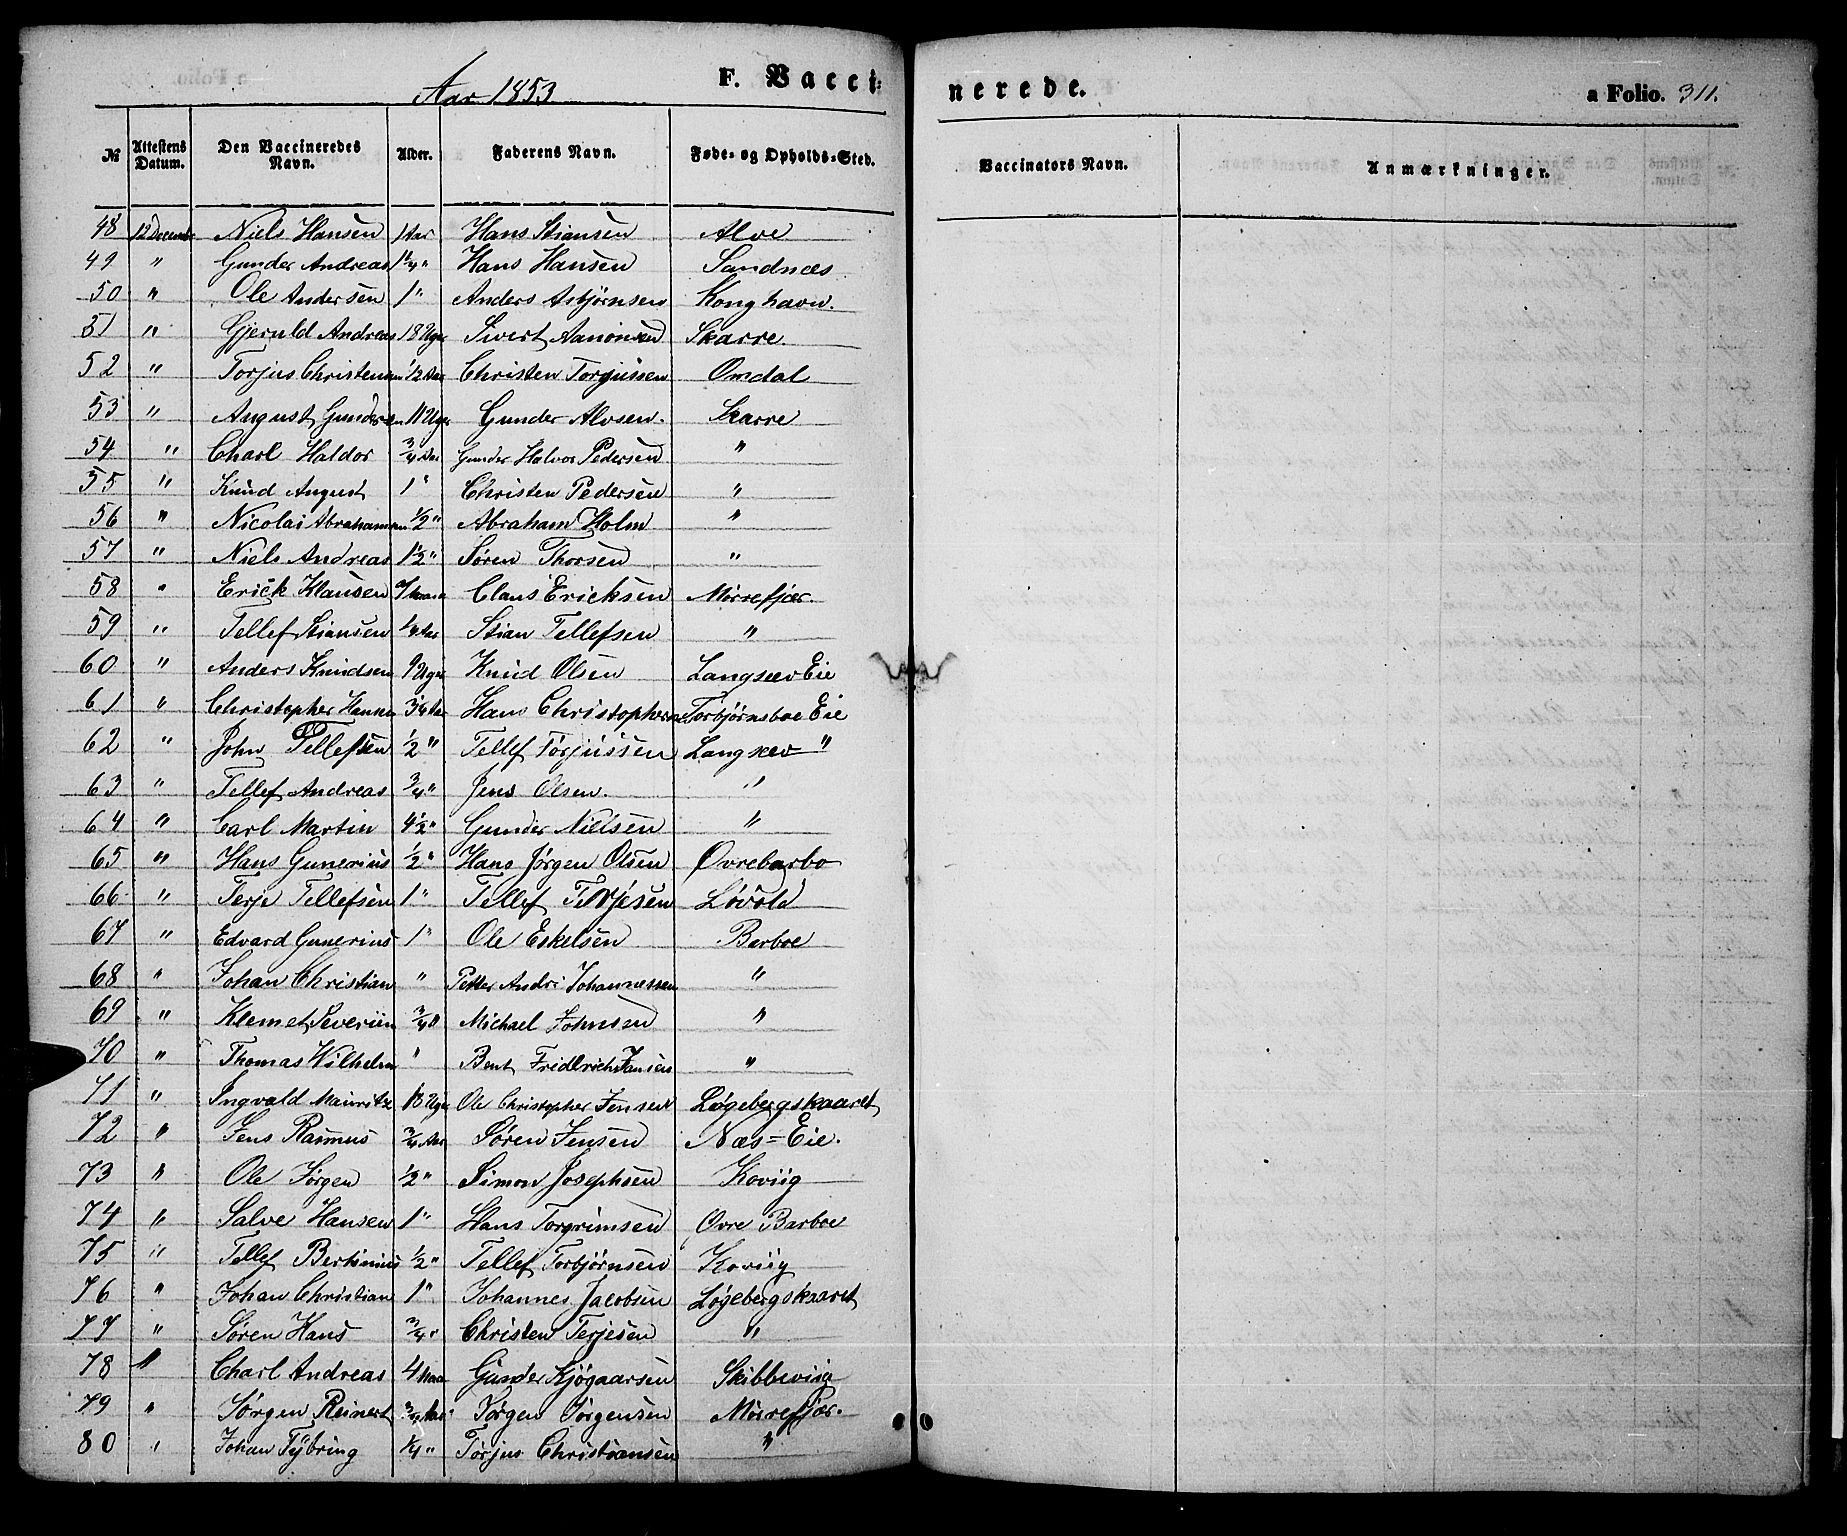 Aar 1853
F. Vacci=
nerede.
a Folio. 311.
№ Attestens Datum. Den Vaccineredes Navn. Alder. Faderens Navn. Føde- og Opholds-Sted. Vaccinators Navn. Anmærkninger.
48 12 Decembr Niels Hansen 1 Aar Hans Stiansen Alve
49 " Gunder Andreas 1 1/4 " Hans Hansen Sandnæs
50 " Ole Andersen 1 " Anders Asbjørnsen Kongshavn.
51 " Gjeruld Andreas 18 Uger Sivert Aanonsen Skarre.
52 " Torjus Christensen 1/2 Aar Christen Torgussen Omdal
53 " August Gundersen 11 Uger Gunder Alvsen. Skarre
54 " Charl Haldor 3/4 Aar Gunder Halvor Pedersen "
55 " Knud August 1 " Christen Pedersen "
56 " Nicolai Abrahamsen 1/2 " Abraham Holm "
57 " Niels Andreas 1 1/2 " Søren Thorsen "
58 " Erick Klausen Claus Ericksen Mørrefjær.
59 " Tellef Stiansen 1/4 Aar Stian Tellefsen "
60 " Anders Knudsen 9 Uger Knud Olsen Langsæv Eie
61 " Christopher Hansen 3/4 Aar Hans Christophersen Torbjørnsboe Eie
62 " John Tellefsen 1/2 " Tellef Torjussen Langsæv "
63 " Tellef Andreas 3/4 " Jens Olsen. "
64 " Carl Martin 4 1/2 " Gunder Nielsen "
65 " Hans Gunerius 1/2 " Hans Jørgen Olsen Øvrebarbo
66 " Terje Tellefsen 1 " Tellef Terjesen Løvold
67 " Edvard Gunerius 1 " Ole Eskelsen Barboe
68 " Johan Christian " Petter Andr: Johannessen "
69 " Klemet Severiin 3/4 " Michael Johnsen "
70 " Thomas Wilhelm " Bent Fridlrich Jansen "
71 " Ingvald Mauritz 18 Uger Ole Christopher Jensen Løgebergskaaret
72 " Jens Rasmus 3/4 Aar Søren Jensen Næs=Eie.
73 " Ole Jørgen 1/2 " Simon Josephsen Koviig
74 " Salve Hansen 1 " Hans Torgrimsen Øvre Barboe
75 " Tellef Bertinius 1/2 " Tellef Torbjørnsen Koviig
76 " Johan Christian 1 " Johannes Jacobsen Løgebergskaaret
77 " Søren Hans 3/4 " Christen Terjesen "
78 " Charl Andreas 4 Gunder Kjøgaarsen Skibbeviig
79 " Jørgen Reinert 3/4 Aar Jørgen Jørgensen Mørrefjær.
80 " Johan Tybring 1/4 " Torjus Christiansen "